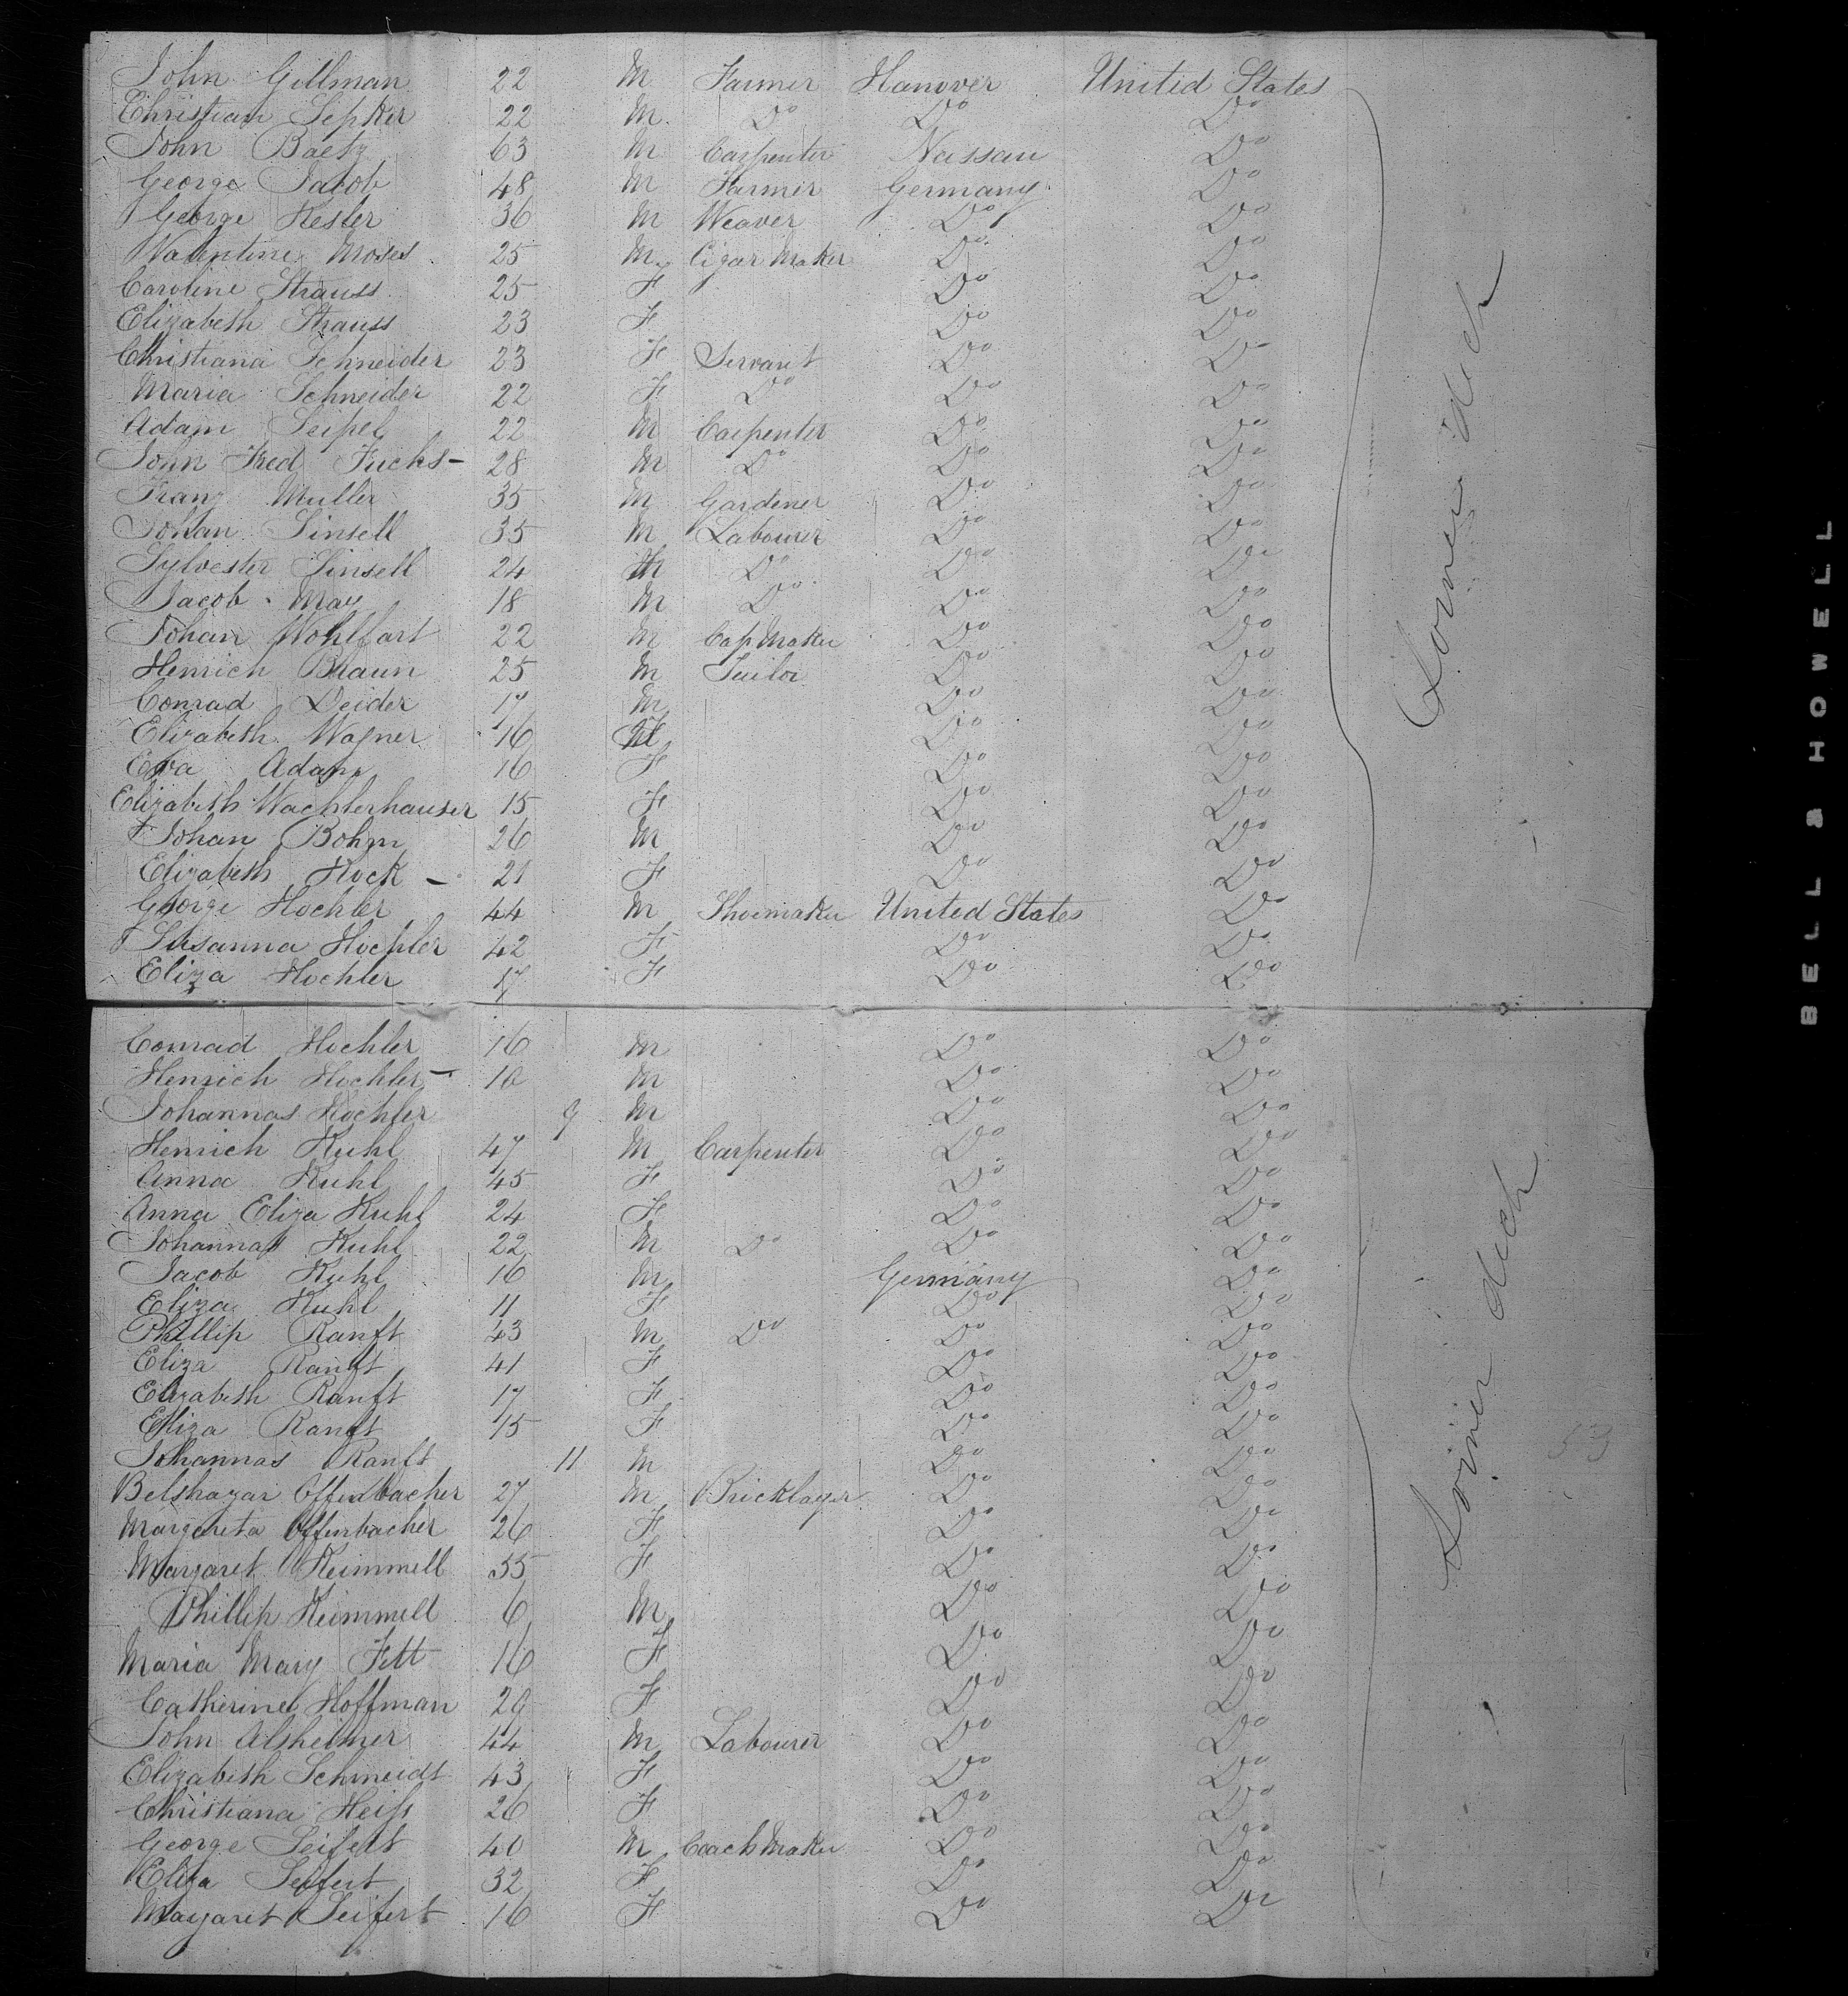 John Gillman 22 M Farmer Hanover United States
Christian Sepker 22 M. Do Do Do
John Baetz 63 M Carpenter Nassau Do
George Jacob 48 M Farmer Germany Do
George Kesler 36 M Weaver Do Do
Valentine Moses 25 M. Cigar Maker Do Do
Caroline Strauss 25 F Do Do
Elizabeth Strauss 23 F Do Do
Christiana Schneider 23 F Servant Do Do
Maria Schneider 22 F Do Do Do
Adam Seipel 22 M Carpenter Do Do
John Fred Fuchs - 28 M Do Do Do
Franz Muller 35 M Gardener Do Do
Johan Sinsell 35 M Labourer Do Do
Sylvester Sinsell 24 M Do Do Do
Jacob May 18 M Do Do Do
Johan Wohlfart 22 M Cap Maker Do Do
Henrich Braun 25 M Tailor Do Do
Conrad Deider 17 M Do Do
Elizabeth Wagner 16 Do Do
Eva Adam 16 F Do Do
Elizabeth Wachterhauser 15 F Do Do
Johan Bohm 26 M Do Do
Elizabeth Kock - 21 F Do Do
George Hochler 44 M Shoemaker United States Do
Susanna Hochler 42 F Do Do
Eliza Hochler 17 F Do Do
Lower deck
Conrad Hochler 16 M Do Do
Henrich Hochler - 10 M Do Do
Johannas Hochler 9 M Do Do
Henrich Kuhl 47 M Carpenter Do Do
Anna Kuhl 45 F Do Do
Anna Eliza Kuhl 24 F Do Do
Johannas Kuhl 22 M Do Do Do
Jacob Kuhl 16 M Germany Do
Eliza Kuhl 11 F Do Do
Phillip Ranft 43 M Do Do Do
Eliza Ranft 41 F Do Do
Elizabeth Ranft 17 F Do Do
Eliza Ranft 15 F Do Do
Johannas Ranft 11 M Do Do
Belshazar Offenbacher 27 M Bricklayer Do Do
Margareta Offenbacher 26 F Do Do
Margaret Keimmell 35 F Do Do
Phillip Keimmell 6 M Do Do
Maria Mary Fett 16 F Do Do
Catherine Hoffman 29 F Do Do
John Alsheimer 44 M Labourer Do Do
Elizabeth Schmeidt 43 F Do Do
Christiana Heiss 26 F Do Do
George Seifert 40 M Coach Maker Do Do
Eliza Seifert 32 F Do Do
Margaret Seifert 16 F Do Do
Lower deck
53
BELL & HOWELL